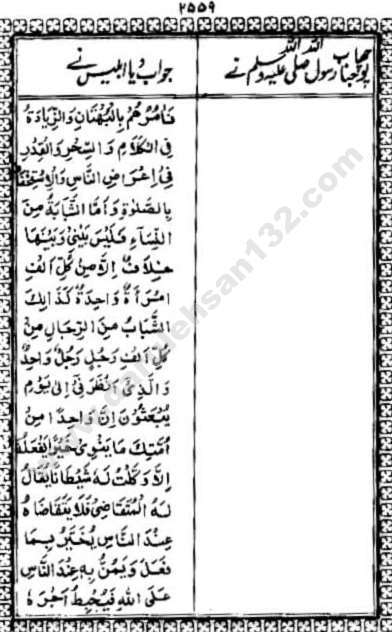 ۲۵۵۹
پوچھا جناب رسول اللہ صلی اللہ علیہ وسلم نے
جواب دیا ابلیس نے
فَآمُرُهُمْ بِالْبُهْتَانِ وَالزِّيَادَةِ
فِى الْكَلَامِ وَالسِّحْرِ وَالْغَدْرِ
فِى اِعْرَاضِ النَّاسِ وَالْاِسْتِخْفَافِ
بِالصَّلٰوةِ وَاَمَّا الشَّابَّةُ مِنَ
النِّسَآءِ فَلَيْسَ بَيْنِىْ وَبَيْنَهَا
خِلَافٌ اِلَّا مِنْ كُلِّ اَلْفِ
امْرَأَةٍ وَاحِدَةٌ كَذَالِكَ
الشَّبَابُ مِنَ الرِّجَالِ مِنْ
كُلِّ اَلْفِ رَجُلٍ رَجُلٌ وَاحِدٌ
وَالَّذِىْ اَنْظَرَنِىْ اِلٰى يَوْمِ
يُبْعَثُوْنَ اِنَّ وَاحِدًا مِنْ
اُمَّتِكَ مَا يَنْوِىْ خَيْرًا يَفْعَلُهُ
اِلَّا وَكَّلْتُ لَهُ شَيْطَانًا يُقَالُ
لَهُ الْمُتَقَاضِىْ فَلَا يَتَقَاضَاهُ
عِنْدَ النَّاسِ يُخْبِرُ بِمَا
فَعَلَ وَيَمُنُّ بِهٖ عِنْدَ النَّاسِ
عَلَى اللّٰهِ فَيُحْبِطُ اَجْرَهٗ